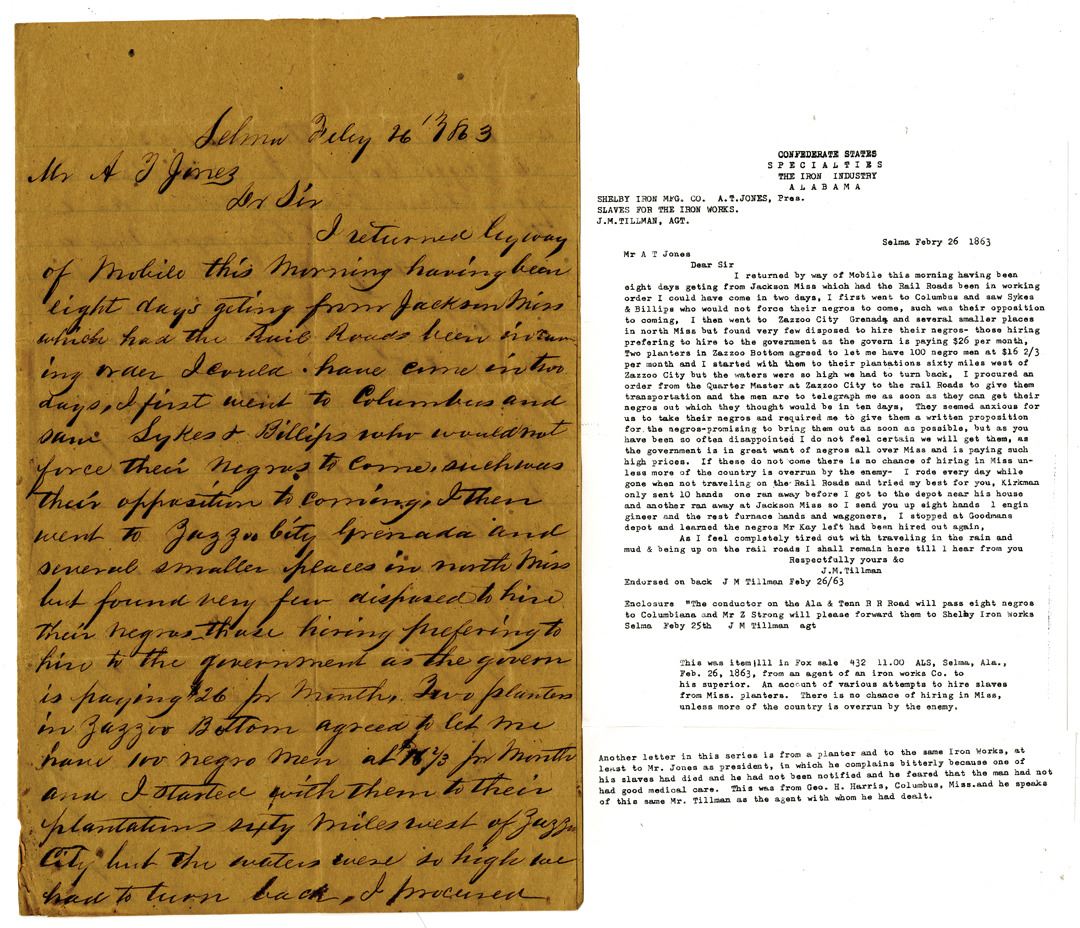 Selma Feby 26th 1863
Mr A T Jones
Dr Sir
I returned by way
of Mobile this morning having been
eight days geting from Jackson Miss
which had the Rail Roads been in runn
ing order I could have come in two
days, I first went to Columbus and
saw Sykes & Billips who would not
force their negros to come, such was
their opposition to coming, I then
went to Zazzoo City Grenada and
several smaller places in north Miss
but found very few disposed to hire
their negros those hiring prefering to
hire to the government as the govern
is paying $26 pr Month, Two planters
in Zazzoo Bottom agreed to let me
have 100 negro men at $16 2/3 pr Month
and I started with them to their
plantations sixty miles west of Zazzoo
City but the waters were so high we
had to turn back, I procured
CONFEDERATE STATES
SPECIALTIES
THE IRON INDUSTRY
ALABAMA
SHELBY IRON MFG. CO. A.T.JONES, Pres.
SLAVES FOR THE IRON WORKS.
J.M.TILLMAN, AGT.
Selma Febry 26 1863
Mr A T Jones
Dear Sir
I returned by way of Mobile this morning having been
eight days geting from Jackson Miss which had the Rail Roads been in working
order I could have come in two days, I first went to Columbus and saw Sykes
& Billips who would not force their negros to come, such was their opposition
to coming, I then went to Zazzoo City Grenada and several smaller places
in north Miss but found very few disposed to hire their negros- those hiring
prefering to hire to the government as the govern is paying $26 per month,
Two planters in Zazzoo Bottom agreed to let me have 100 negro men at $16 2/3
per month and I started with them to their plantations sixty miles west of
Zazzoo City but the waters were so high we had to turn back, I procured an
order from the Quarter Master at Zazzoo City to the rail Roads to give them
transportation and the men are to telegraph me as soon as they can get their
negros out which they thought would be in ten days, They seemed anxious for
us to take their negros and required me to give them a written proposition
for the negros-promising to bring them out as soon as possible, but as you
have been so often disappointed I do not feel certain we will get them, as
the government is in great want of negros all over Miss and is paying such
high prices. If these do not come there is no chance of hiring in Miss un-
less more of the country is overrun by the enemy- I rode every day while
gone when not traveling on the Rail Roads and tried my best for you, Kirkman
only sent 10 hands one ran away before I got to the depot near his house
and another ran away at Jackson Miss so I send you up eight hands 1 engin
gineer and the rest furnace hands and waggoners, I stopped at Goodmans
depot and learned the negros Mr Kay left had been hired out again,
As I feel completely tired out with traveling in the rain and
mud & being up on the rail roads I shall remain here till I hear from you
Respectfully yours &c
J.M.Tillman
Endorsed on back J M Tillman Feby 26/63
Enclosure "The conductor on the Ala & Tenn R R Road will pass eight negros
to Columbiana and Mr Z Strong will please forward them to Shelby Iron Works
Selma Feby 25th J M Tillman agt
This was item 111 in Fox sale 432 11.00 ALS, Selma, Ala.,
Feb. 26, 1863, from an agent of an iron works Co. to
his superior. An account of various attempts to hire slaves
from Miss. planters. There is no chance of hiring in Miss,
unless more of the country is overrun by the enemy.
Another letter in this series is from a planter and to the same Iron Works, at
least to Mr. Jones as president, in which he complains bitterly because one of
his slaves had died and he had not been notified and he feared that the man had not
had good medical care. This was from Geo. H. Harris, Columbus, Miss.and he speaks
of this same Mr. Tillman as the agent with whom he had dealt.